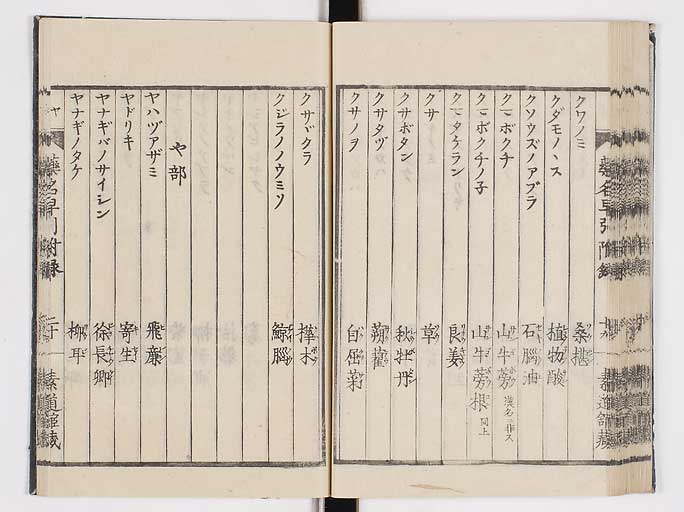 クワノミ 桑椹
クダモノハス 植物酸
クソウズノアブラ 石腦油
クマボクチ 山牛蒡
クマボクチノ子 山牛蒡根 漢名ニ非ス 同上
クマタケラン 良姜
クサ 草
クサボタン 秋牡丹
クサタヅ 蒴藋
クサノヲ 白屈菜
クサボクラ 樺木
クジラノノウミソ 鯨腦
や部
ヤハヅアザミ 飛廉
ヤドリキ 寄生
ヤナギバノサイシン 徐長卿
ヤナギノタケ 柳耳
ヤ 藥名早引附録 二十